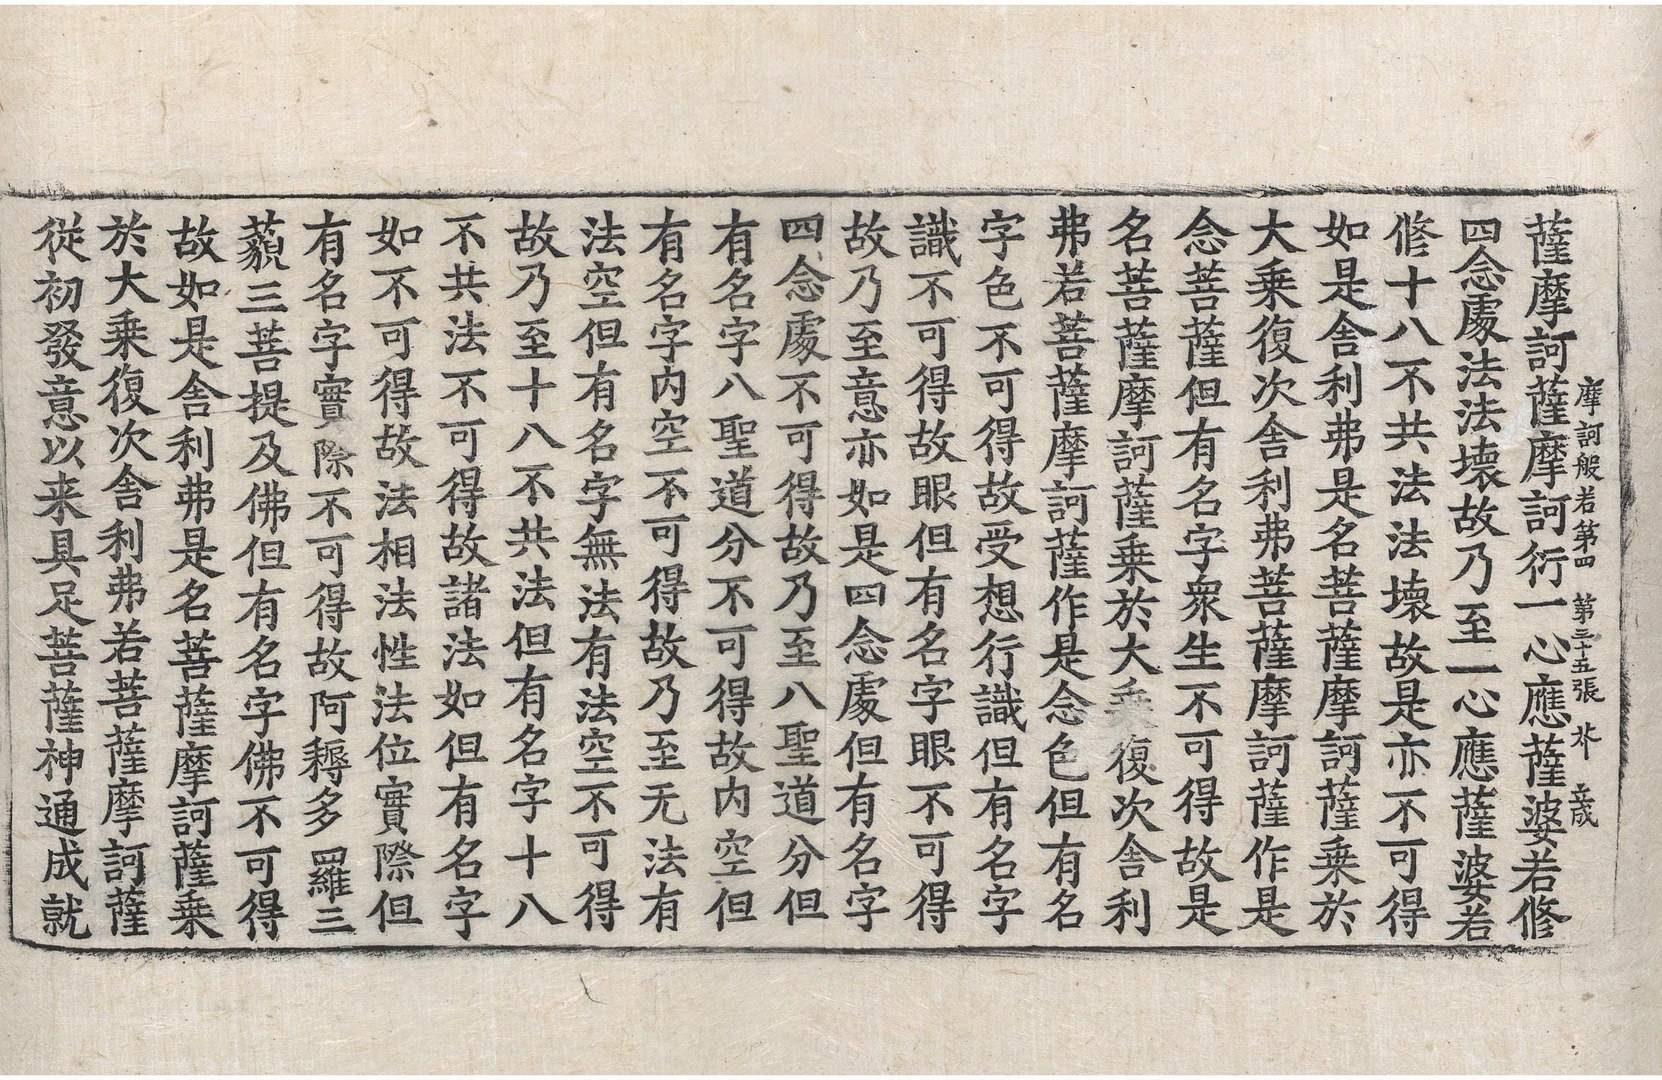 摩訶般若第四 第三十五張 芥
薩摩訶薩摩訶衍一心應薩婆若修
四念處法法壞故乃至一心應薩婆若
修十八不共法法壞故是亦不可得
如是舍利弗是名菩薩摩訶薩乘於
大乘復次舍利弗菩薩摩訶薩作是
念菩薩但有名字衆生不可得故是
名菩薩摩訶薩乘於大乘復次舍利
弗若菩薩摩訶薩作是念色但有名
字色不可得故受想行識但有名字
識不可得故眼但有名字眼不可得
故乃至意亦如是四念處但有名字
四念處不可得故乃至八聖道分但
有名字八聖道分不可得故内空但
有名字内空不可得故乃至无法有
法空但有名字無法有法空不可得
故乃至十八不共法但有名字十八
不共法不可得故諸法如但有名字
如不可得故法相法性法位實際但
有名字實際不可得故阿耨多羅三
藐三菩提及佛但有名字佛不可得
故如是舍利弗是名菩薩摩訶薩乘
於大乘復次舍利弗若菩薩摩訶薩
從初發意以来具足菩薩神通成就